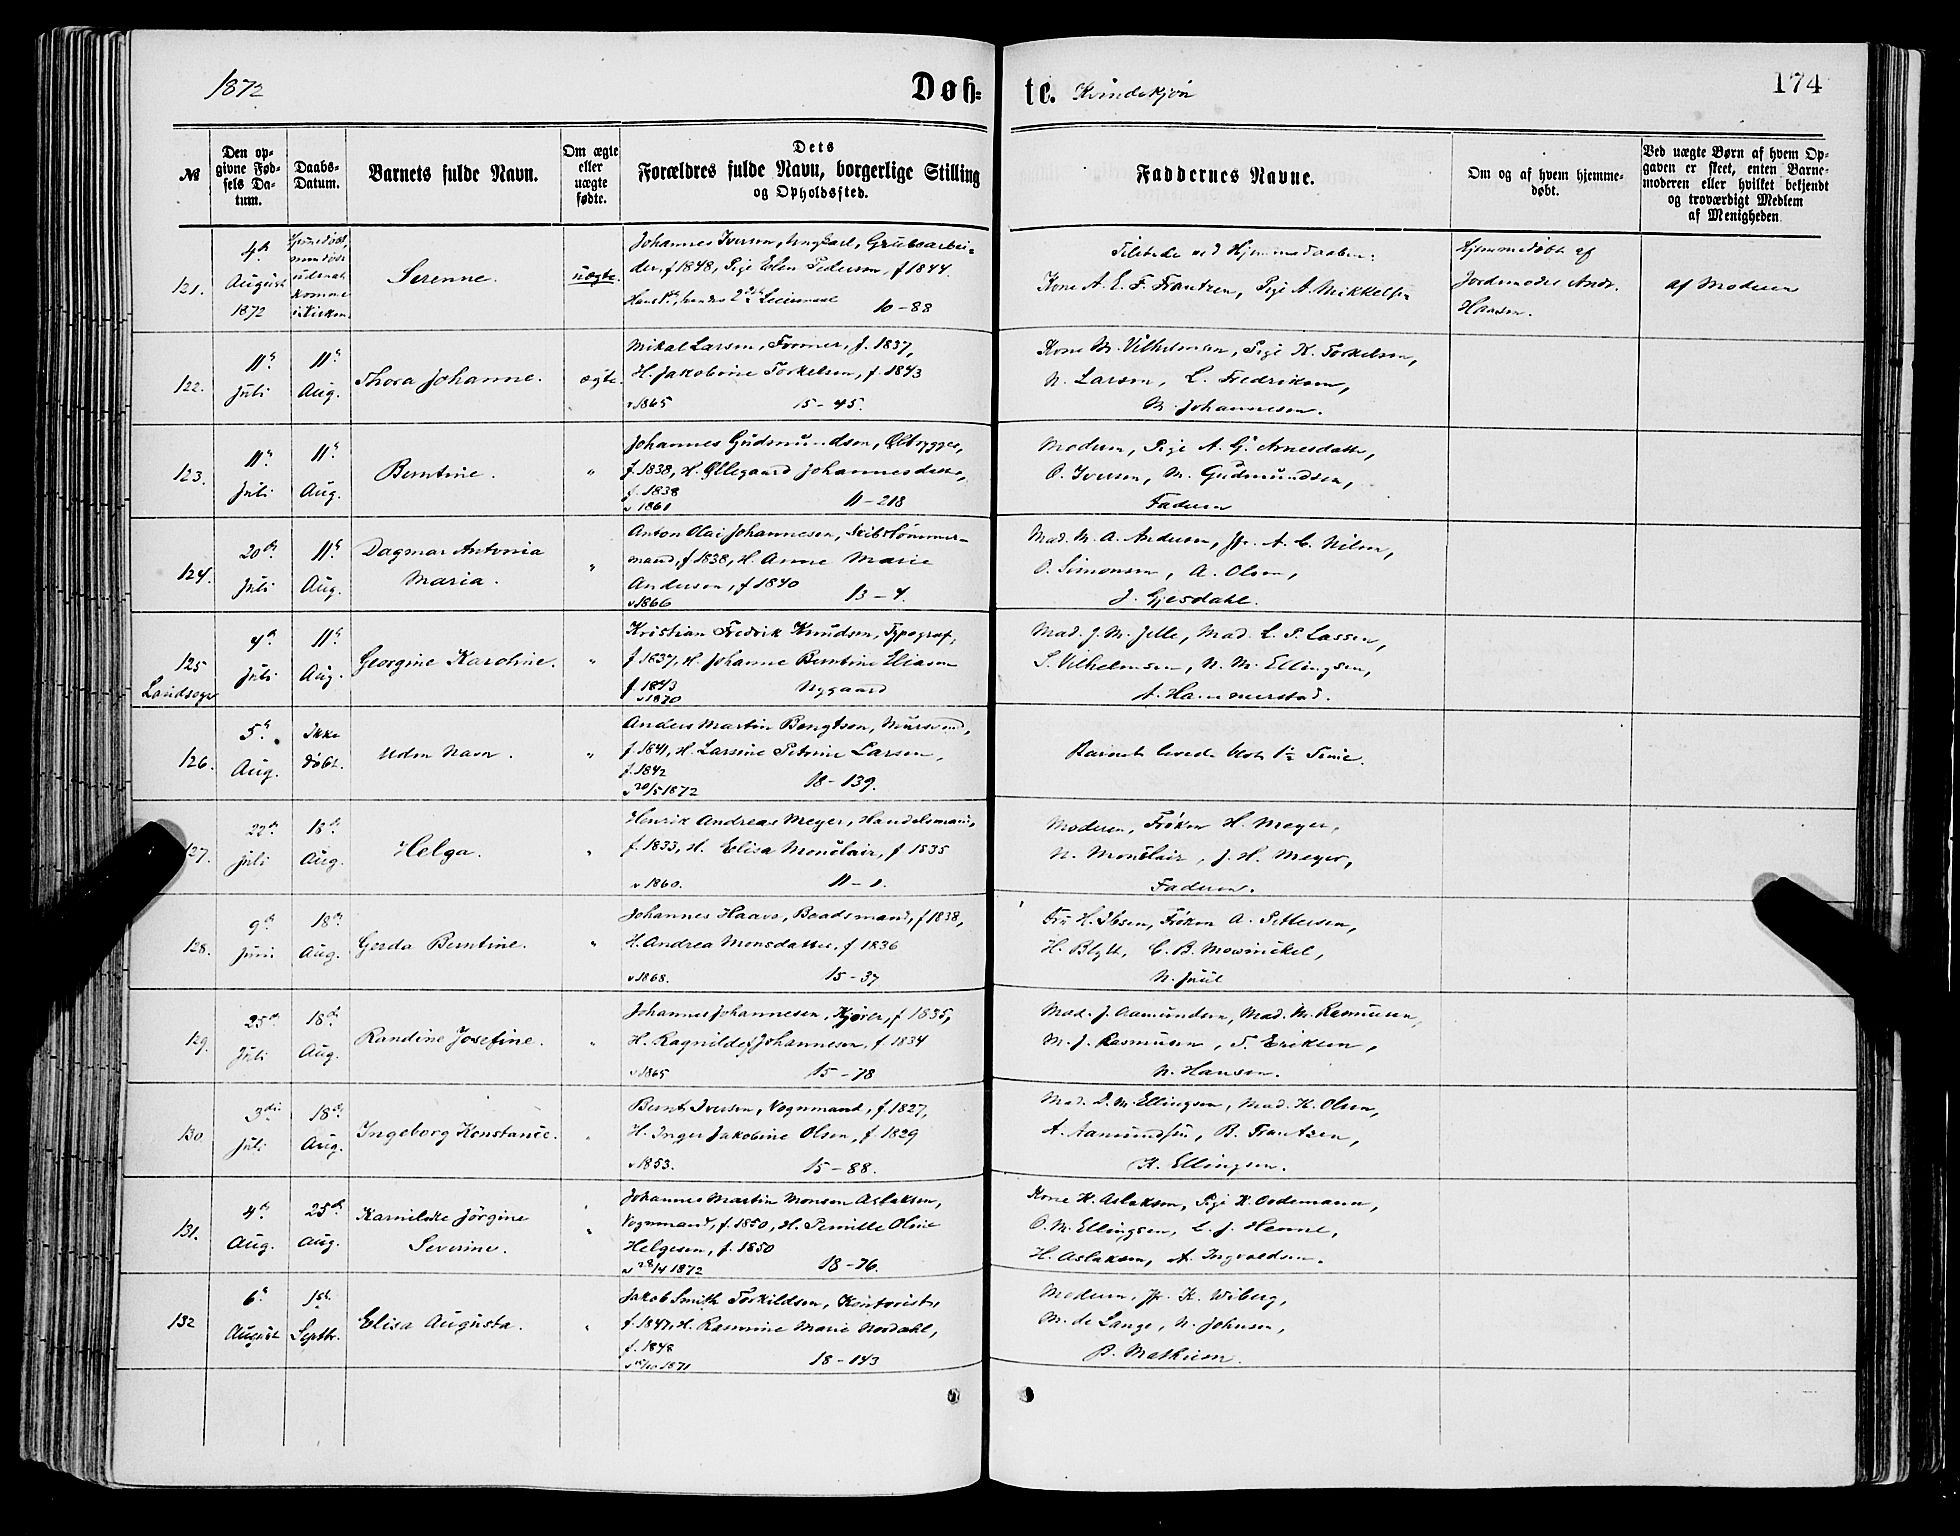 1872
Døb-
te. Kvindekjøn
174
№
Den op-
givne Fød-
sels Da-
tum.
Daabs-
Datum.
Barnets fulde Navn.
Om ægte
eller
uægte
fødte.
Dets
Forældres fulde Navn, borgerlige Stilling
og Opholdssted.
Faddernes Navne.
Om og af hvem hjemme-
døbt.
Ved uægte Børn af hvem Op-
gaven er skeet, enten Barne-
moderen eller hvilket bekjendt
og troværdigt Medlem
af Menigheden
121.
4de
August
1872
Hjemmedøbt,
komme
i Kirken
Serenne.
uægte.
Johannes Iversen, Ungkarl, Grubearbei-
der, f 1848, Pige Elen Pedersen, f 1844.
hendes 2det Leiermaal
10-88
Tilstede ved Hjemmedaaben:
Kone A. E. F. Frantzen, Pige A. Mikkelsen
Hjemmedøbt af
Jordemoder Andr.
Hansen.
af Moderen
122.
11te
Juli
11te
Aug.
Thora Johanne.
ægte.
Mikal Larsen, Former, f. 1837,
H. Jakobine Torkelsen, f. 1843
v 1865 15-45.
Kone M. Vilhelmsen, Pige K. Torkelsen,
N. Larsen, L. Fredriksen,
M. Johannesen.
123.
11te
Juli
11te
Aug.
Berntine.
"
Johannes Gudmundsen, Ølbrygger,
f 1838, H. Øllegaard Johannesdatter,
f. 1838
v 1861 11-218
Moderen, Pige A. G. Arnesdatter,
O. Iversen, M. Gudmundsen,
Faderen
124.
20de
Juli
11te
Aug.
Dagmar Antonia
Maria.
"
Anton Olai Johannesen, Skibstømmer-
mand, f 1838, H. Anne Marie
Andersen, f 1840
v 1866 13-4.
Mad. M. A. Andersen, Jfr. A. C. Nilsen,
O. Simonsen, A. Olsen,
J. Gjesdahl.
125
Landsogn
4de
Juli
11te
Aug.
Georgine Karoline.
"
Kristian Fredrik Knudsen, Typograf,
f 1837, H. Johanne Berntine Eliasen
f. 1843 Nygaard
v 1870
Mad. J. M. Jelle, Mad. L. P. Lassen,
S. Vilhelmsen, N. M. Ellingsen,
A. Hammerstad.
126.
5te
Aug.
Ikke
døbt.
Uden Navn.
"
Anders Martin Bengtsen, Mursvend,
f. 1841, H. Larsine Petrine Larsen,
f. 1842
v 20/5 1872 18-139.
Barnet levede blot 1½ Time.
127.
22de
Juli
18de
Aug.
Helga.
"
Henrik Andreas Meyer, Handelsmand,
f. 1833, H. Elisa Monclair, f 1835
v 1860. 11-1.
Moderen, Frøken H. Meyer,
N. Monclair, J. H. Meyer,
Faderen.
128.
9de
Juni
18de
Aug.
Gerda Berntine.
"
Johannes Haavs, Baadsmand, f 1838,
H. Andrea Monsdatter, f 1836
v 1868. 15-37
Fru H. Ibsen, Frøken A. Pettersen,
H. Blytt, C. B. Mowinckel,
N. Juul
129.
25de
Juli
18de
Aug.
Randine Josefine.
"
Johannes Johannesen, Kjører, f 1835,
H. Ragnilde Johannesen, f 1834
v 1865 15-78
Mad. J. Aamundsen, Mad. M. Rasmusen,
M. J. Rasmusen, T. Eriksen,
N. Hansen.
130
3die
Juli
18de
Aug.
Ingeborg Konstance.
"
Bernt Iversen, Vognmand, f. 1827,
H. Inger Jakobine Olsen, f 1829
v 1853. 15-88.
Mad. D. M. Ellingsen, Mad. K. Olsen,
A. Aamundsen, B. Frantzen,
K. Ellingsen.
131.
4de
Aug.
25de
Aug.
Kamilike Jörgine
Severine.
"
Johannes Martin Monsen Aslaksen,
Vognmand, f. 1850, H. Pernille Oline
Helgesen, f. 1850
v 28/4 1872 18-76.
Kone H. Aslaksen, Pige K. Oodemann,
O. M. Ellingsen, L. J. Henne,
H. Aslaksen, A. Ingvaldsen.
132
6te
August
1ste
Septbr.
Elisa Augusta.
"
Jakob Smith Torkildsen, Kontorist,
f. 1847, H. Rasmine Marie Nordahl,
f. 1848
v 15/10 1871 18-143
Moderen, Jfr. K. Wiberg,
M. de Lange, N. Johnsen,
B. Mathisen.